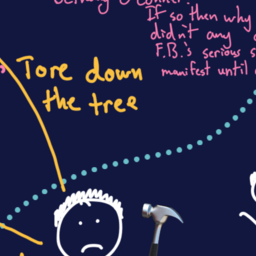 If so then why
didn't any
F.B.'s serious
manifest until
Tore down
the tree